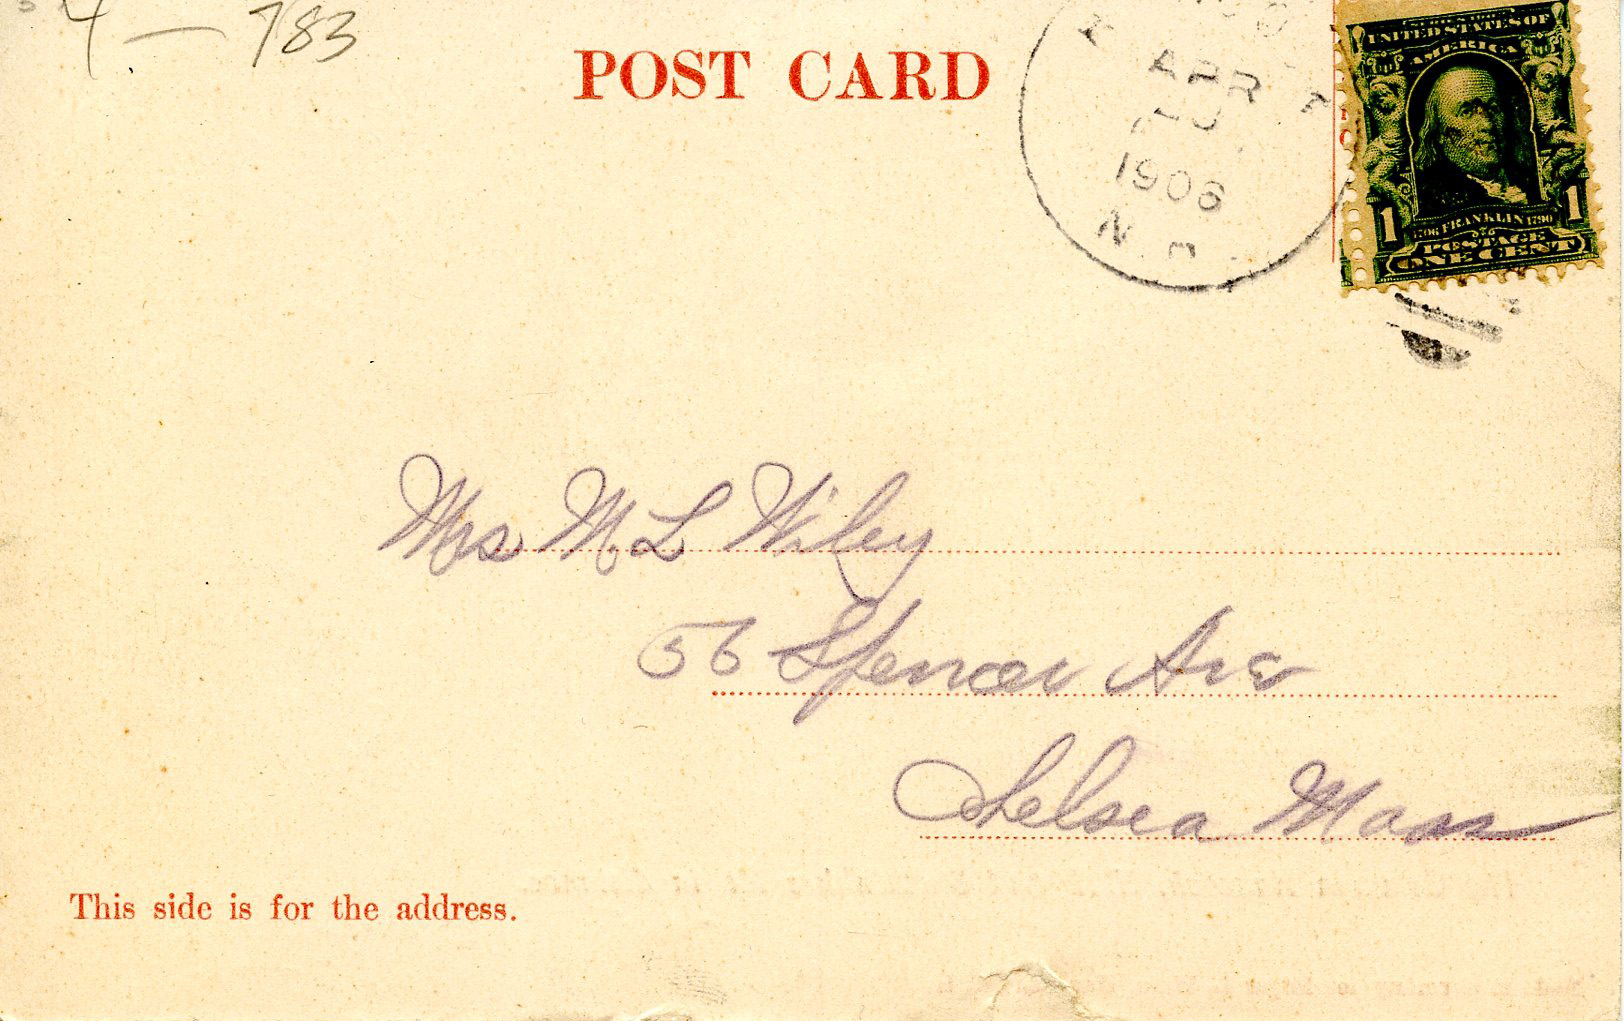 4 — 783
POST CARD
APR
1906
N
UNITED STATES OF
AMERICA
1 1706 FRANKLIN 1790 1
POSTAGE
ONE CENT
Mrs M. L Wiley
56 Spencer Ave
Chelsea Mass
This side is for the address.